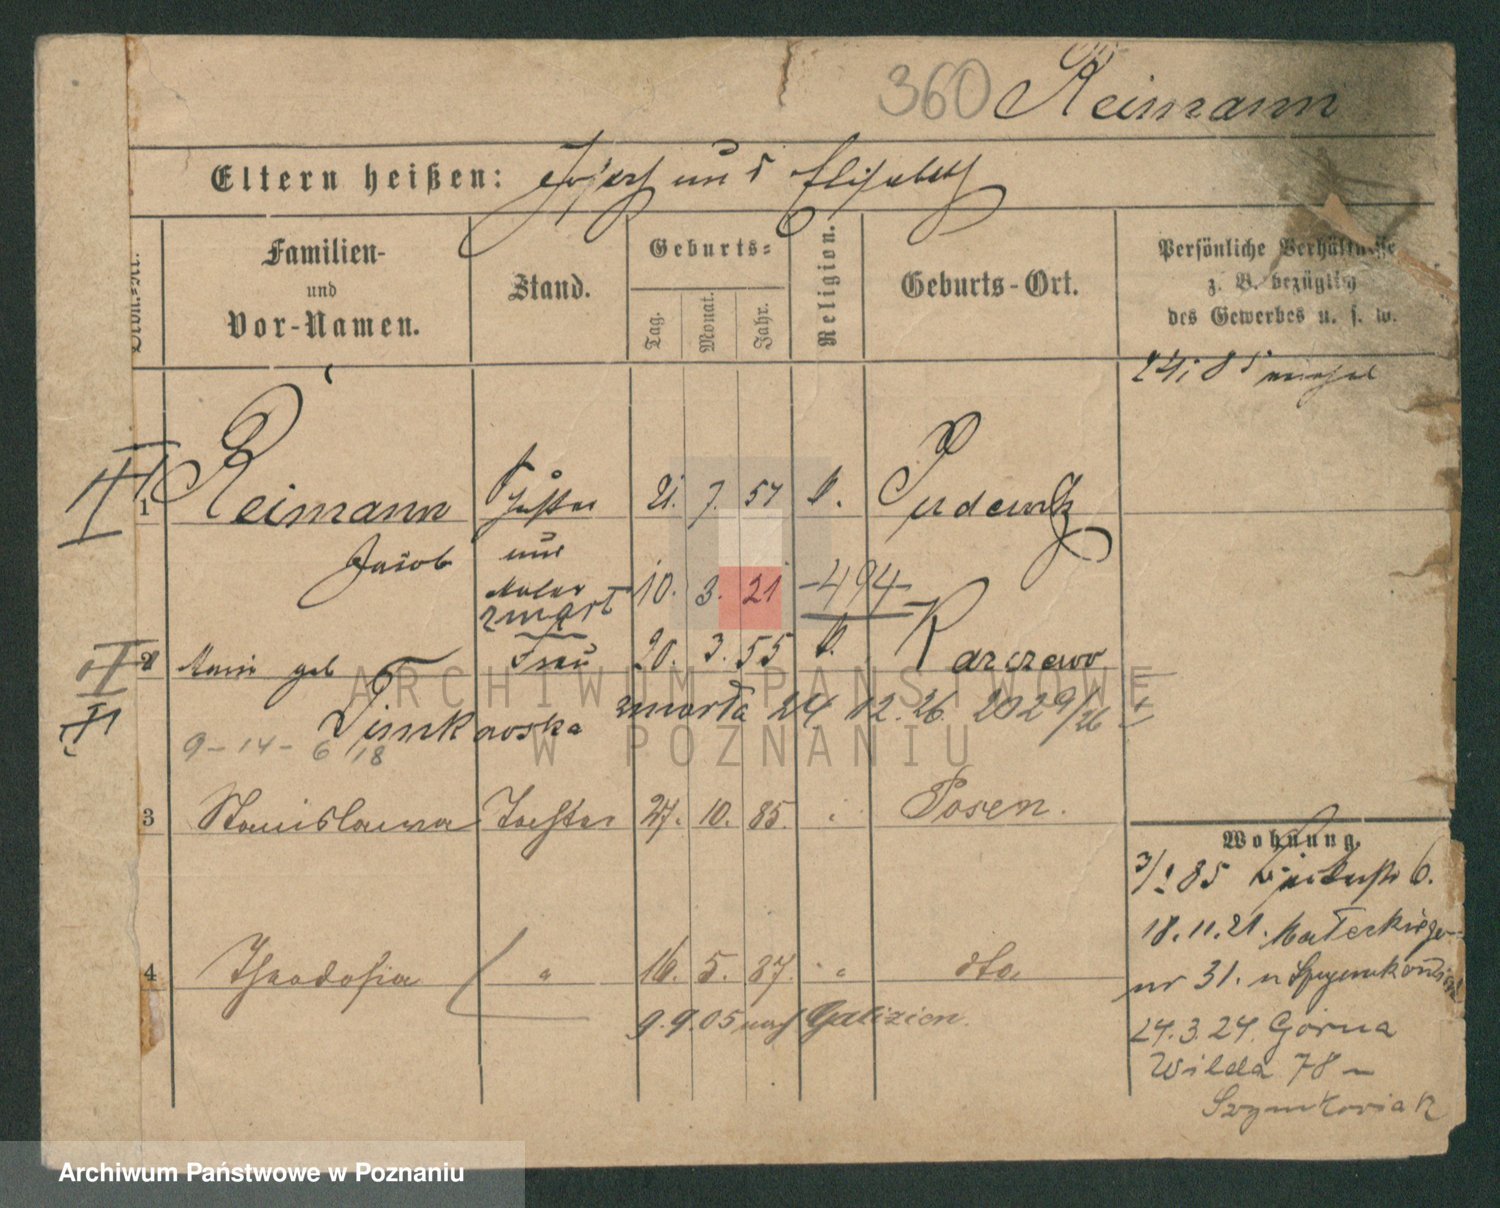 360 Reimann
Eltern heißen: Josef und Elisabeth
Familien-
und
Vor-Namen.
Stand.
Geburts=
Tag.
Monat.
Jahr.
Religion.
Geburts-Ort.
Persönliche Verhältnisse
z. B. bezüglich
des Gewerbes u. s. w.
II
1 Reimann Schuster 21. 7. 57 k. Pudewitz
Jacob und
Maler 10. 3. 21 -494-
zmarł
2 Marie geb Frau 20. 3. 55 k. Karczewo
Timkowska zmarła 24 12. 26. 2029/26
9-14-6 18
3 Stanislawa Tochter 27. 10. 85. Posen.
Wohnung.
85 6.
18.11.21. Małeckiego
4 Theodosia " 16. 5. 87. " dto
nr 31. u Szymkowiak
9.9.05 nach Galizien.
24.3.24. Górna
Wilda 78 –
Szymkowiak
ARCHIWUM PAŃSTWOWE
W POZNANIU
Archiwum Państwowe w Poznaniu